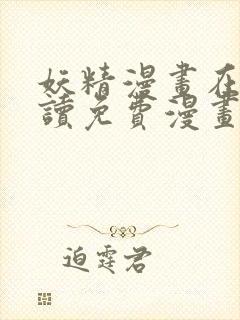 妖精漫畫在
讀免費漫畫
迫霆君